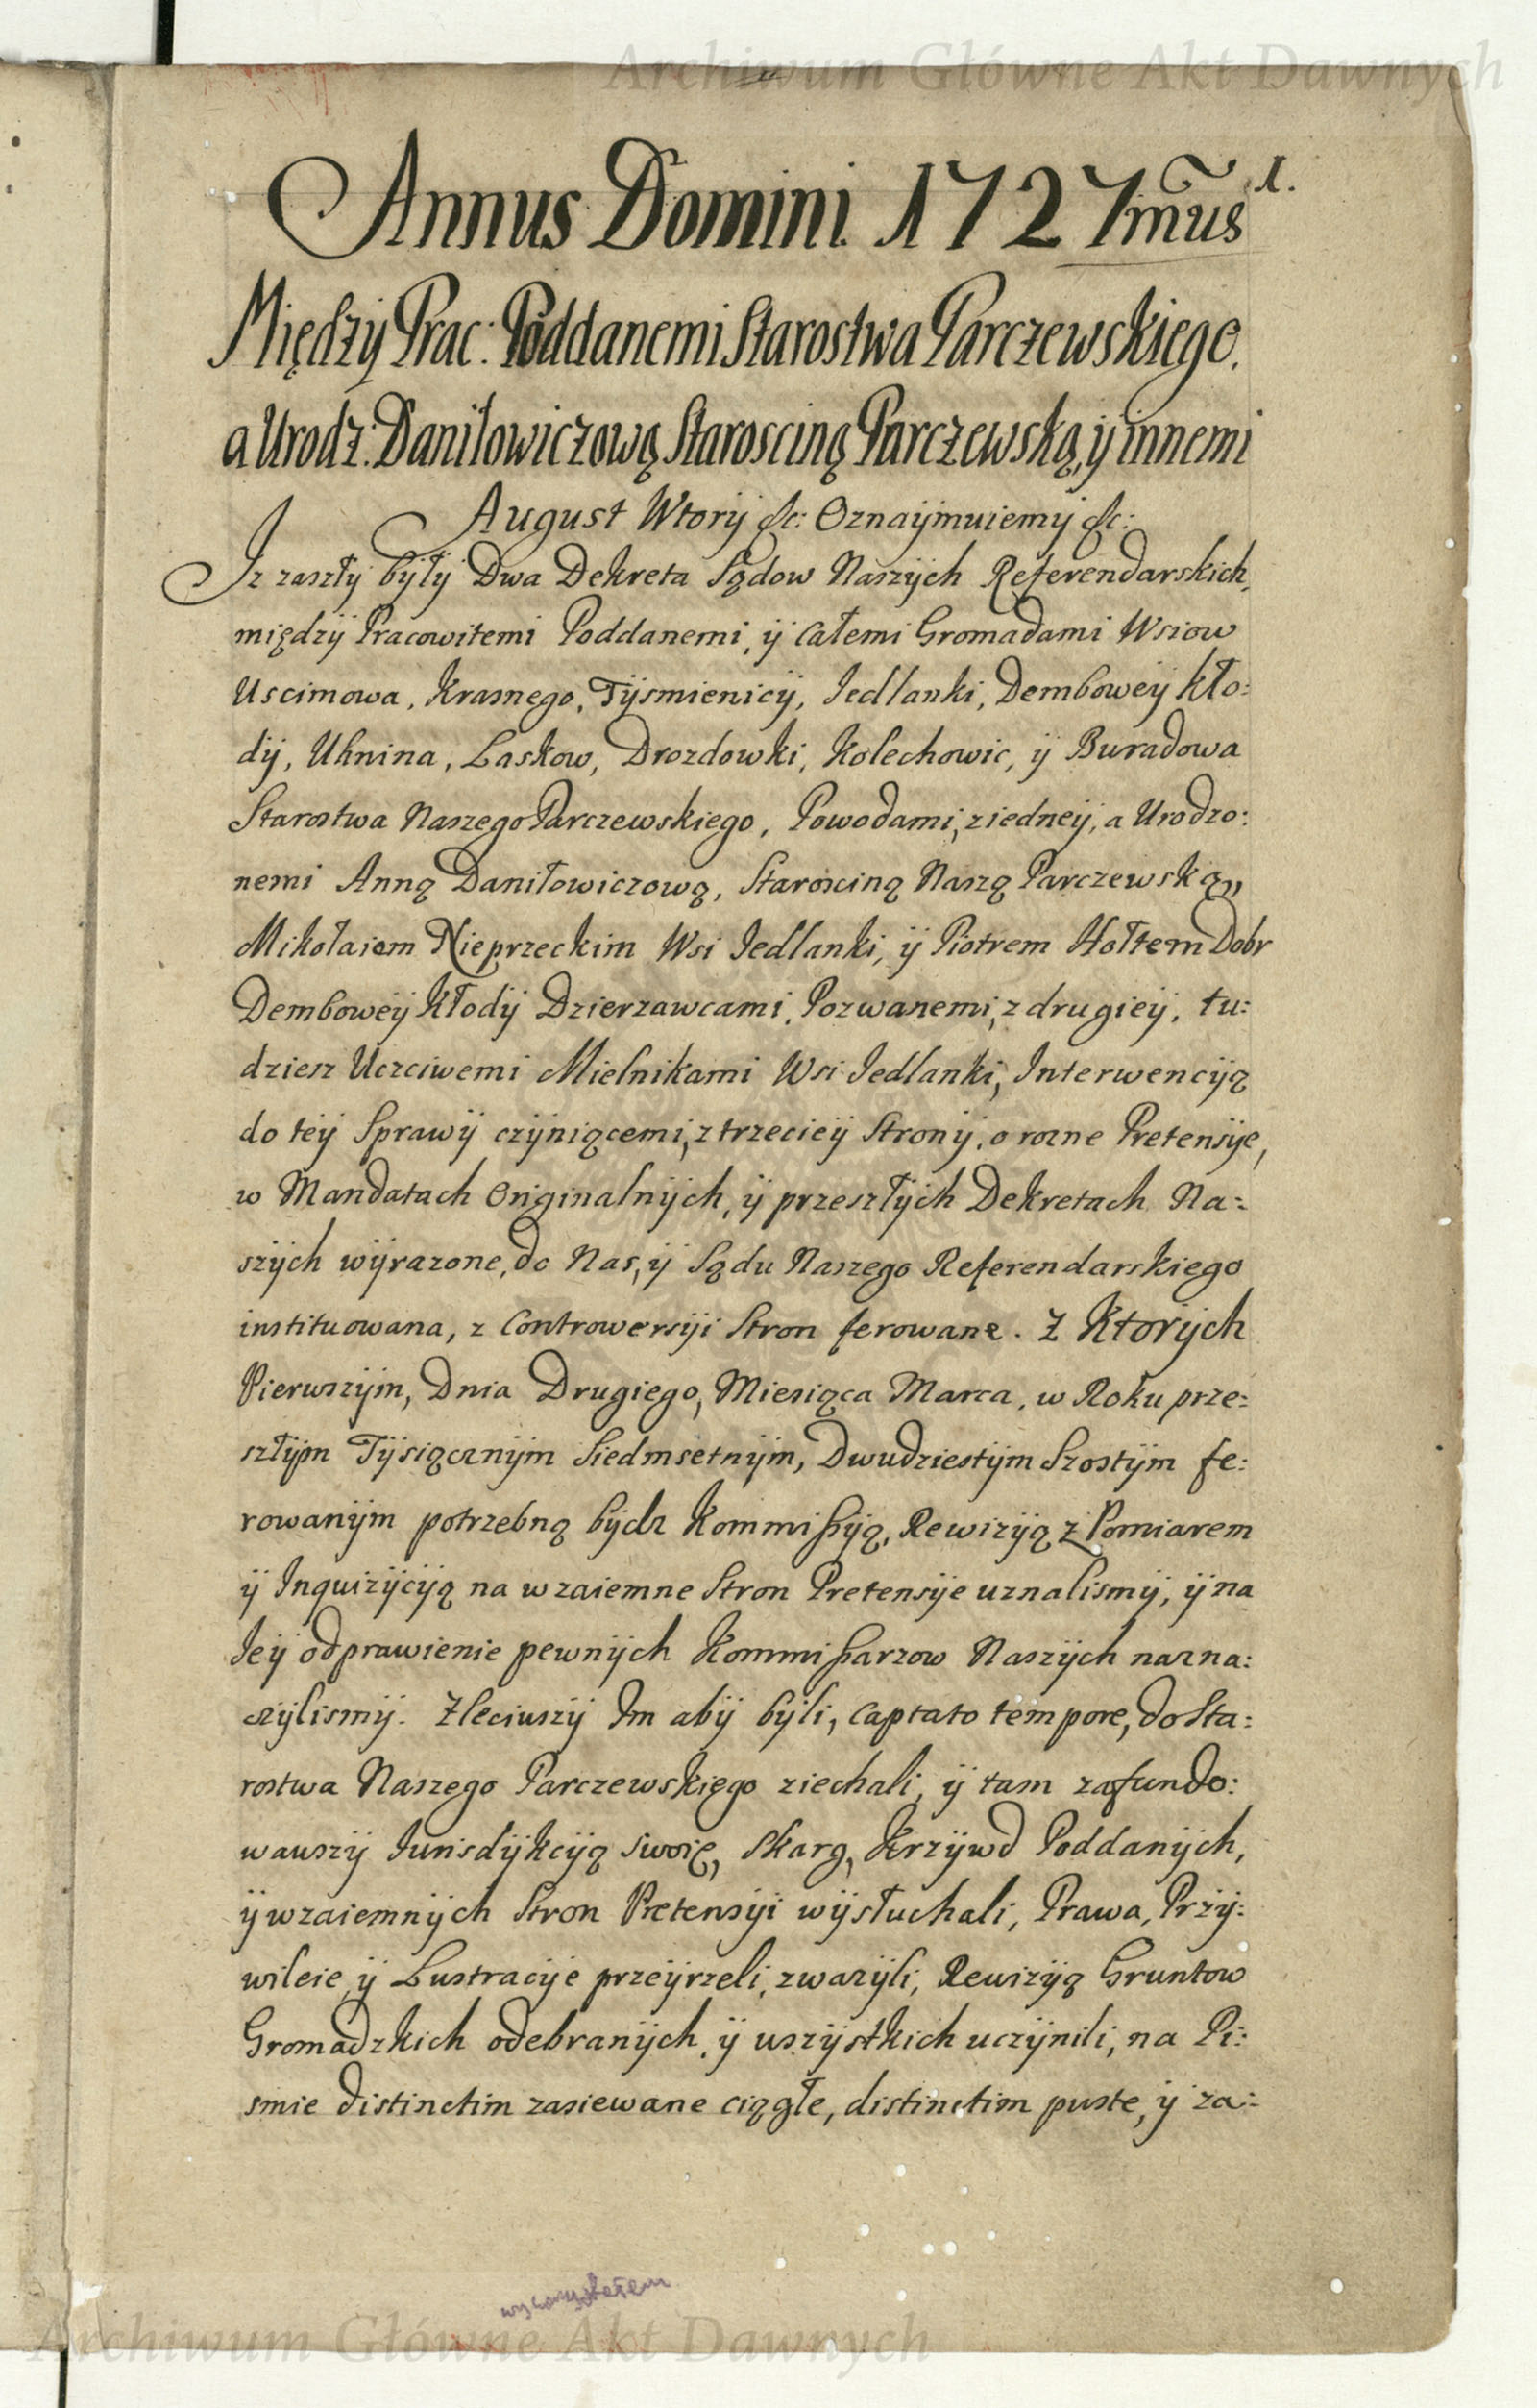 Archiwum Główne Akt Dawnych
1.
Annus Domini 1727mus
Między Prac: Poddanemi Starostwa Parczewskiego,
a Urodz: Daniłowiczową Starosciną Parczewską, ÿ innemi
August Wtorÿ &c: Oznaÿmuiemÿ &c:
Iz zaszłÿ bÿłÿ Dwa Dekreta Sądow Naszÿch Referendarskich,
międzÿ Pracowitemi Poddanemi, ÿ całemi Gromadami Wsiow
Uscimowa, Krasnego, Tÿsmienicÿ, Iedlanki, Demboweÿ Kło:
dÿ, Uhnina, Laskow, Drozdowki, Kolechowic, ÿ Buradowa
Starostwa Naszego Parczewskiego, Powodami, z iedneÿ, a Urodzo:
nemi Anną Daniłowiczową, Starosciną Naszą Parczewską,,
Mikołaiem Nieprzeckim Wsi Iedlanki, ÿ Piotrem Hołtem Dobr
Demboweÿ Kłodÿ Dzierzawcami, Pozwanemi, z drugieÿ, tu:
dziesz Uczciwemi Mielnikami Wsi Iedlanki, Interwencÿą
do teÿ Sprawÿ czÿniącemi, z trzecieÿ Stronÿ, o rozne Pretensÿe,
w Mandatach Originalnÿch, ÿ przeszłÿch Dekretach Na:
szÿch wÿrazone, do Nas, ÿ Sądu Naszego Referendarskiego
instituowana, z Controwersÿi Stron ferowane. Z Ktorÿch
Pierwszÿm, Dnia Drugiego, Miesiąca Marca, w Roku prze:
szłÿm Tÿsiącznÿm Siedmsetnÿm, Dwudziestÿm Szostÿm fe:
rowanÿm potrzebną bÿdz Kommißÿą, Rewizÿą z Pomiarem
ÿ Inquizÿcÿą na wzaiemne Stron Pretensÿe uznalismÿ, ÿ na
Ieÿ odprawienie pewnÿch Kommißarzow Naszÿch nazna:
czÿlismÿ. Zleciwszÿ Im abÿ bÿli, captato tempore, do Sta:
rostwa Naszego Parczewskiego ziechali, ÿ tam zafundo:
wawszÿ Iurisdÿkcÿą swoię, Skarg, Krzÿwd Poddanÿch,
ÿ wzaiemnÿch Stron Pretensÿi wÿsłuchali, Prawa, Przÿ:
wileie, ÿ Lustracÿe przeÿrzeli, zwazÿli, Rewizÿą Gruntow
Gromadzkich odebranÿch, ÿ wszÿstkich uczÿnili, na Pi:
smie distinctim zasiewane ciągłe, distinctim puste, ÿ za:
Archiwum Główne Akt Dawnych